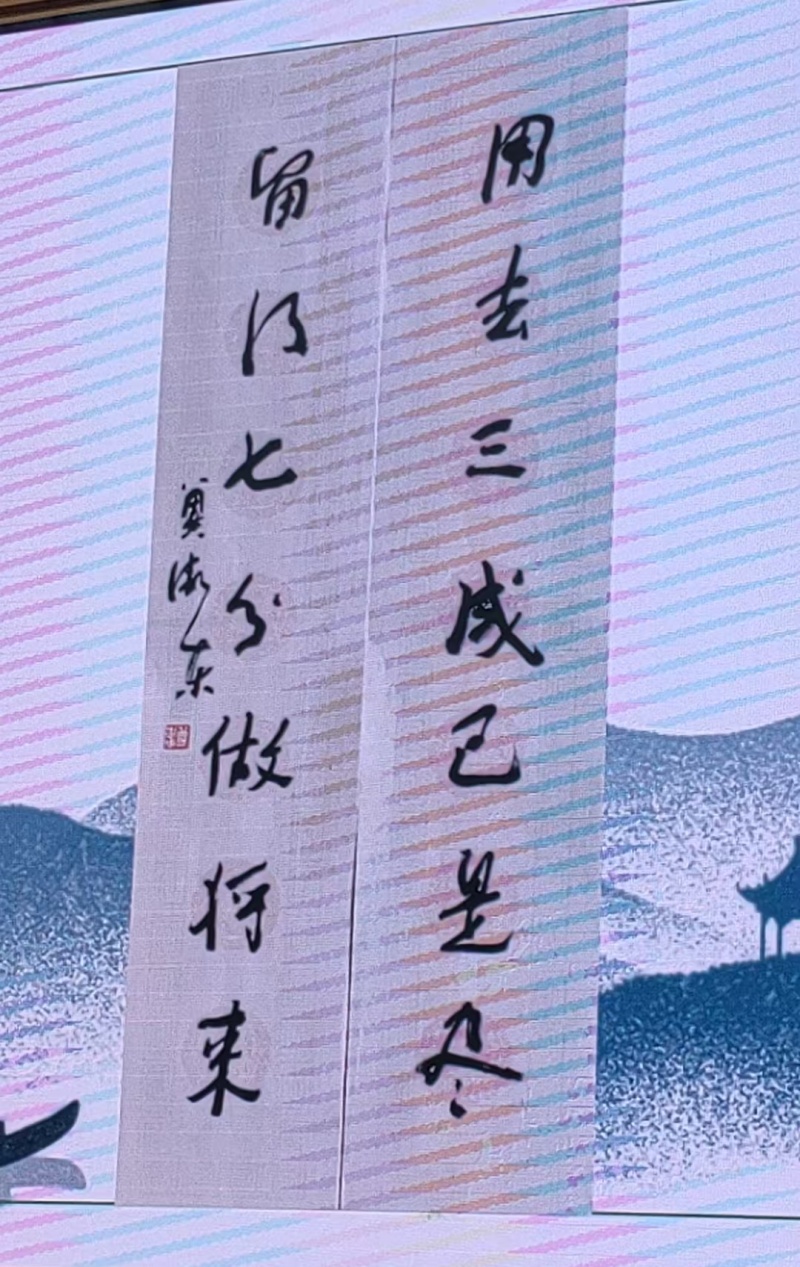 用去三成已是尽
留得七分做将来
莫浙东